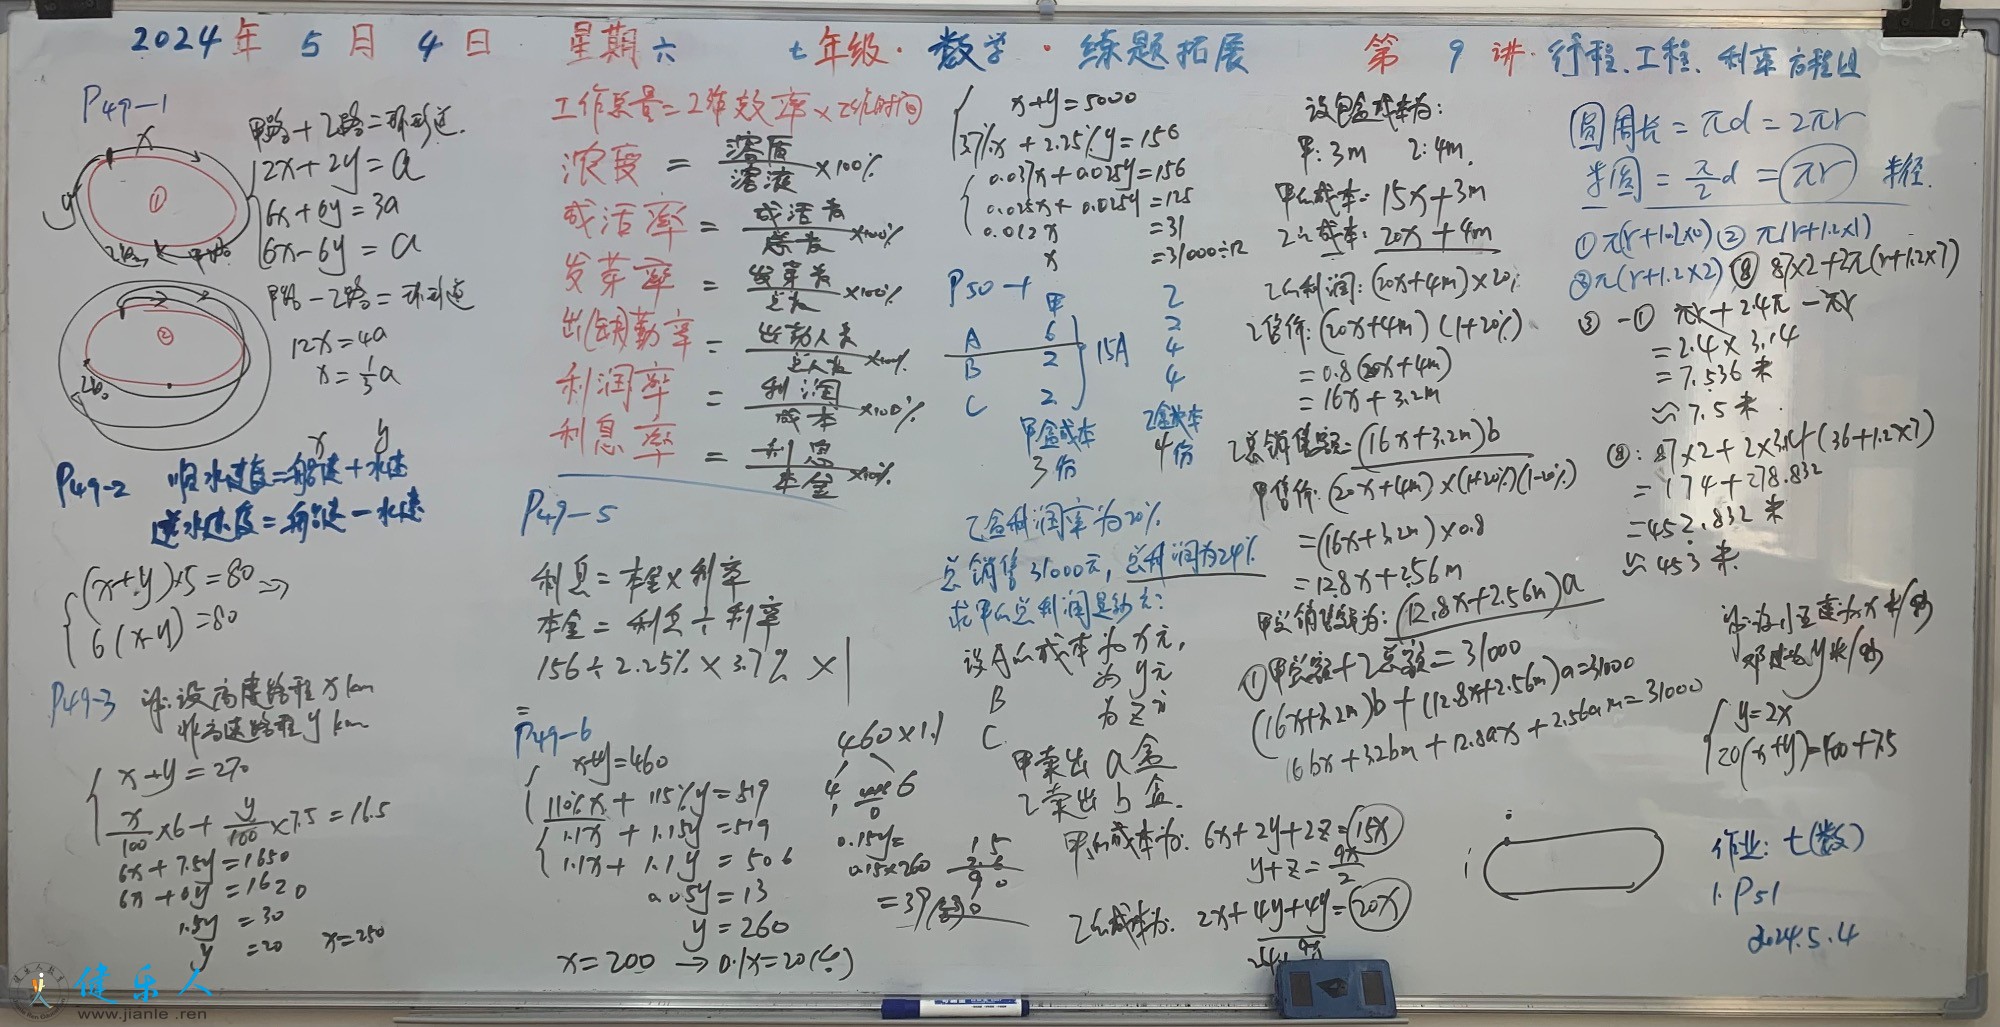 2024年 5月 4日 星期六 七年级·数学·练题拓展 第 9 讲·行程、工程、利率方程组
P49-1
甲路+乙路=环形道.
x
y
①
12x+2y=a
6x+6y=3a
6x-6y=a
②
甲路-乙路=环形道
12x=4a
x=1/3a
x y
P49-2 顺水速度=船速+水速
逆水速度=船速-水速
(x+y)×5=80⇒
6(x-y)=80
P49-3 设高速路程xkm
非高速路程ykm
x+y=270
x/100×6+y/100×7.5=16.5
6x+7.5y=1650
6x+6y=1620
1.5y=30
y=20 x=250
工作总量=工作效率×工作时间
浓度=溶质/溶液×100%
成活率=成活数/总数×100%
发芽率=发芽数/总数×100%
出(缺)勤率=出勤人数/总人数×100%
利润率=利润/成本×100%
利息率=利息/本金×100%
P49-5
利息=本金×利率
本金=利息÷利率
156÷2.25%×3.7%×1
=
P49-6
x+y=460
110%x+115%y=519
1.1x+1.15y=519
1.1x+1.1y=506
0.05y=13
y=260
x=200→0.1x=20
460×1.1
0.15y=
0.15×260
=39
x+y=5000
3.7%x+2.25%y=156
0.037x+0.025y=156
0.025x+0.025y=125
0.012x=31
x=31000÷12
P50-1
甲 乙
A 6 2
B 2 4
C 2 4
15A
甲盒成本 乙盒成本
3份 4份
乙盒利润率为20%
总销售31000元,总利润为24%
求甲的总利润是多少元?
设A的成本为x元,
B 为y元
C 为z元
甲卖出a盒
乙卖出b盒.
甲的成本为:6x+2y+2z=15x
y+z=9x/2
乙的成本为:2x+4y+4y=20x
设包盒成本为:
甲:3m 乙:4m.
甲的成本:15x+3m
乙的成本:20x+4m
乙的利润:(20x+4m)×20%
乙售价:(20x+4m)(1+20%)
=0.8(20x+4m)
=16x+3.2m
乙总销售额=(16x+3.2m)b
甲售价:(20x+4m)×(1+20%)(1-20%)
=(16x+3.2m)×0.8
=12.8x+2.56m
甲总销售额为:(12.8x+2.56m)a
①甲总额+乙总额=31000
(16x+3.2m)b+(12.8x+2.56m)a=31000
16bx+3.2bm+12.8ax+2.56am=31000
圆周长=πd=2πr
半圆=π/2d=πr 半径.
①π(r+1.2×0)②π(r+1.2×1)
③π(r+1.2×2)⑧87×2+2π(r+1.2×7)
③-① πr+2.4π-πr
=2.4×3.14
=7.536米
≈7.5米
⑧:87×2+2×3.14(36+1.2×7)
=174+278.832
=452.832米
≈453米.
y=2x
20(x+y)=400+7.5
作业:七(数)
1.P51
2024.5.4
健乐人
www.jianle.ren